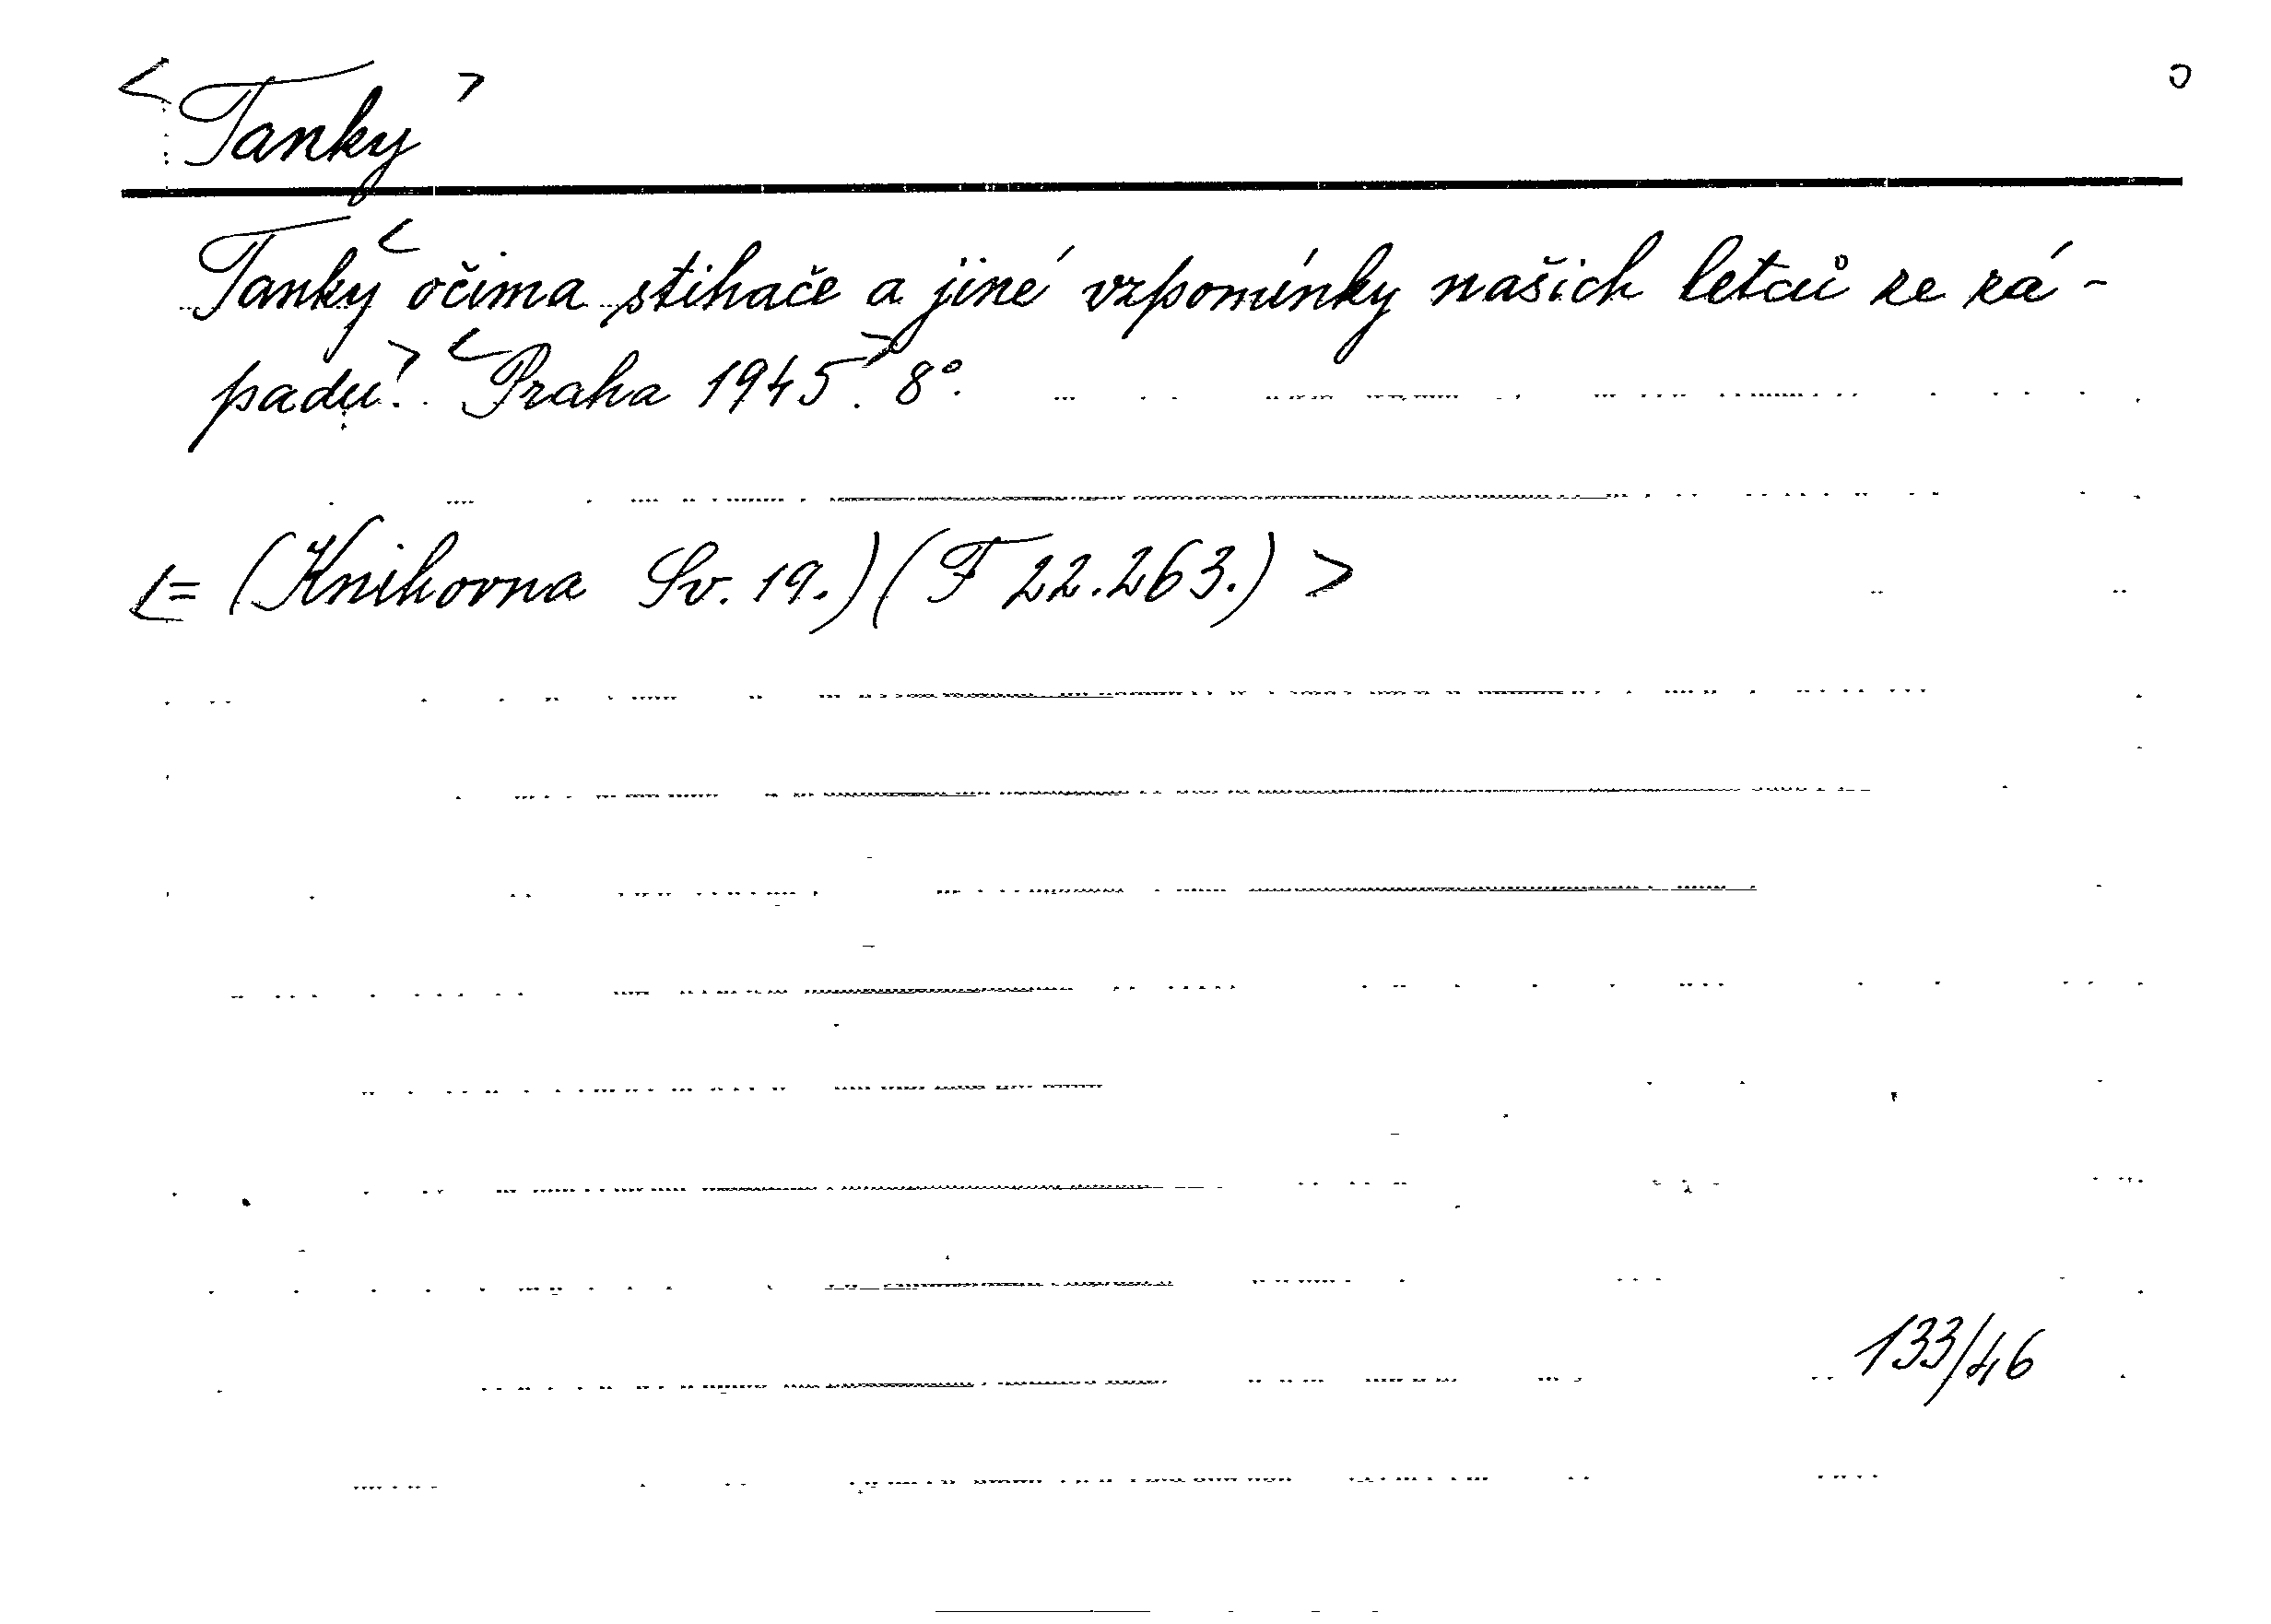 <Tanky>
Tanky <očima stihače a jiné vzpomínky našich letců ze zá-
padu.> <Praha 1945.> 8°.
<= (Knihovna Sv. 19.) (F 22.263.) >
133/46